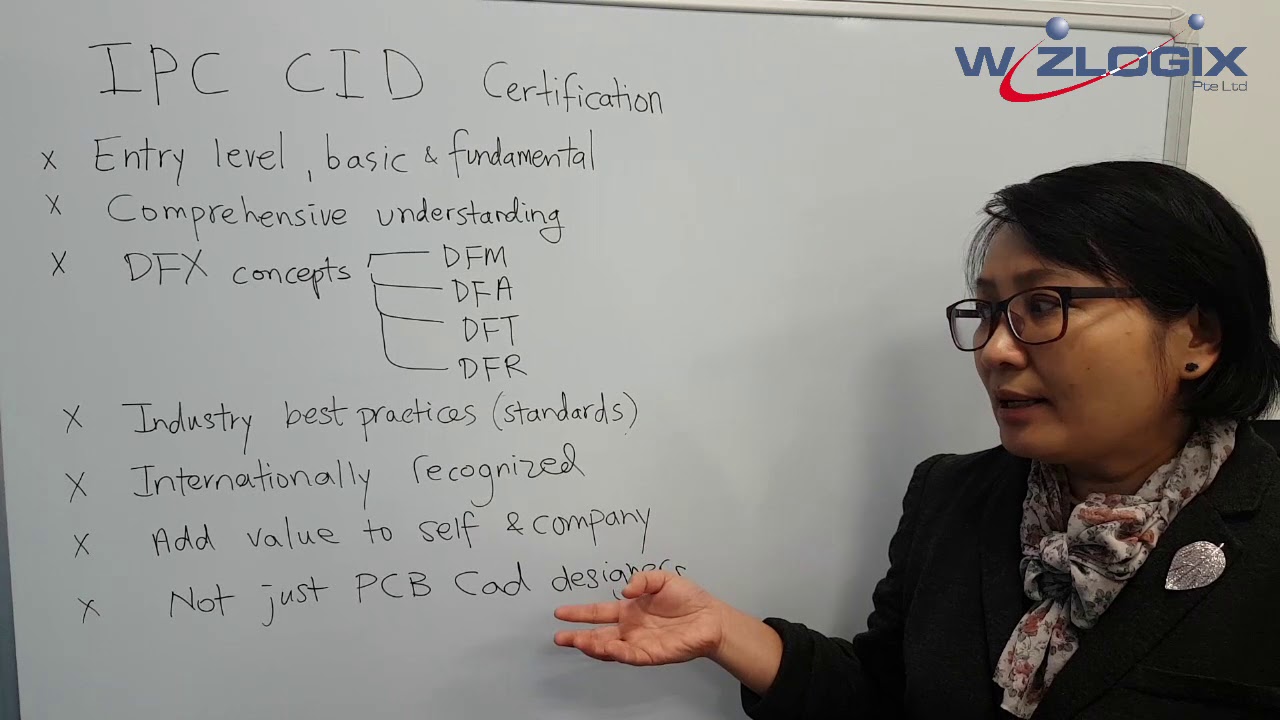 IPC CID Certification
x Entry level, basic & fundamental
x Comprehensive understanding
x DFX concepts
DFM
DFA
DFT
DFR
x Industry best practices (standards)
x Internationally recognized
x Add value to self & company
x Not just PCB Cad designers
WIZLOGIX
Pte Ltd